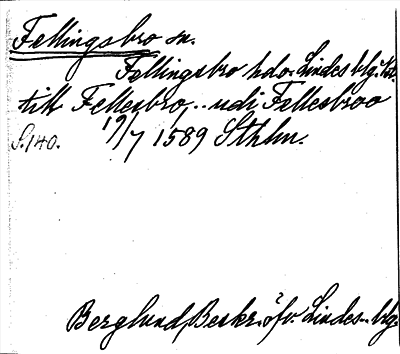 Fellingsbro sn.
Fellingsbro hd o. Lindes blg.
till Fellesbro, .. udi Fellesbroo
S. 140. 19/7 1589 Sthlm.
Berglund, Beskr. öfv. Lindes .. blg.